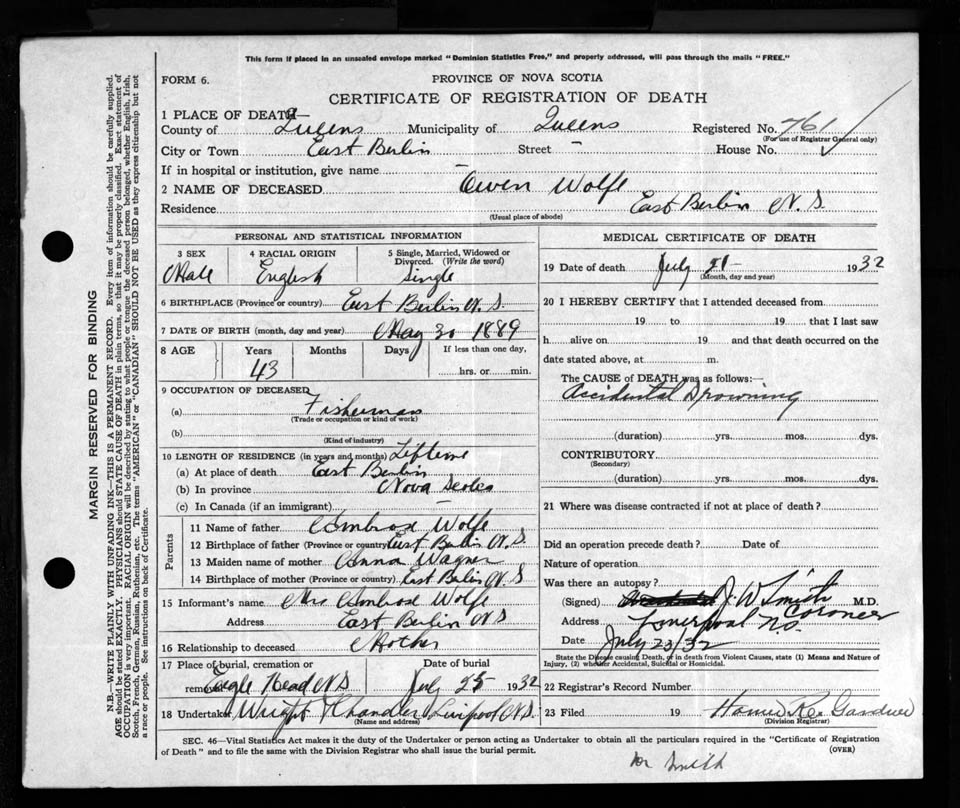 This form if placed in an unsealed envelope marked "Dominion Statistics Free," and properly addressed, will pass through the mails "FREE."
FORM 6.
PROVINCE OF NOVA SCOTIA
CERTIFICATE OF REGISTRATION OF DEATH
1 PLACE OF DEATH—
County of Queens Municipality of Queens Registered No. 761
(For use of Registrar General only)
City or Town East Berlin Street — House No.
If in hospital or institution, give name —
2 NAME OF DECEASED Owen Wolfe
Residence East Berlin N.S.
(Usual place of abode)
PERSONAL AND STATISTICAL INFORMATION
3 SEX Male
4 RACIAL ORIGIN English
5 Single, Married, Widowed or Divorced. (Write the word) Single
6 BIRTHPLACE (Province or country) East Berlin N.S.
7 DATE OF BIRTH (month, day and year) May 30 1889
8 AGE Years 43 Months Days If less than one day, hrs. or min.
9 OCCUPATION OF DECEASED
(a) Fisherman
(Trade or occupation or kind of work)
(b)
(Kind of industry)
10 LENGTH OF RESIDENCE (in years and months) Lifetime
(a) At place of death East Berlin
(b) In province Nova Scotia
(c) In Canada (if an immigrant) —
Parents
11 Name of father Ambrose Wolfe
12 Birthplace of father (Province or country) East Berlin N.S.
13 Maiden name of mother Anna Wagner
14 Birthplace of mother (Province or country) East Berlin N.S
15 Informant's name Mrs Ambrose Wolfe
Address East Berlin N.S
16 Relationship to deceased Mother
17 Place of burial, cremation or removal Eagle Head N.S
Date of burial July 25 1932
18 Undertaker Wright Chandler Liverpool N.S.
(Name and address)
MEDICAL CERTIFICATE OF DEATH
19 Date of death July 21 1932
(Month, day and year)
20 I HEREBY CERTIFY that I attended deceased from
19 to 19 that I last saw
h alive on 19 and that death occurred on the
date stated above, at m.
The CAUSE of DEATH was as follows:—
Accidental Drowning
(duration) yrs. mos. dys.
CONTRIBUTORY
(Secondary)
(duration) yrs. mos. dys.
21 Where was disease contracted if not at place of death?
Did an operation precede death? Date of
Nature of operation
Was there an autopsy?
(Signed) J. W. Smith M.D.
Coroner
Address Liverpool N.S.
Date July 23/32
State the Disease causing Death, or in death from Violent Causes, state (1) Means and Nature of
Injury, (2) whether Accidental, Suicidal or Homicidal.
22 Registrar's Record Number
23 Filed 19 Homer Rex Gardner
(Division Registrar)
SEC. 46—Vital Statistics Act makes it the duty of the Undertaker or person acting as Undertaker to obtain all the particulars required in the "Certificate of Registration
of Death" and to file the same with the Division Registrar who shall issue the burial permit.
(OVER)
Dr Smith
MARGIN RESERVED FOR BINDING
N.B.—WRITE PLAINLY WITH UNFADING INK—THIS IS A PERMANENT RECORD. Every item of information should be carefully supplied.
AGE should be stated EXACTLY. PHYSICIANS should STATE CAUSE OF DEATH in plain terms, so that it may be properly classified. Exact statement of
OCCUPATION is very important. RACIAL ORIGIN will be described by stating to what people or tongue the deceased person belonged, whether English, Irish,
Scotch, French, German, Russian, Ruthenian, etc. The terms "AMERICAN" or "CANADIAN" SHOULD NOT BE USED as they express citizenship but not
a race or people. See instructions on back of Certificate.